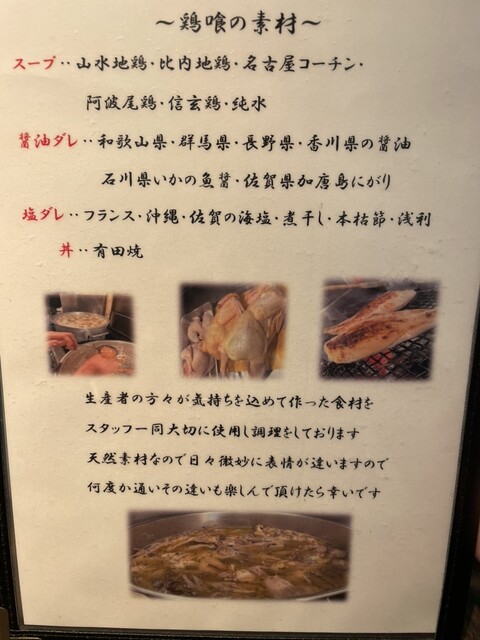 ～鶏喰の素材～
スープ‥山水地鶏・比内地鶏・名古屋コーチン・
阿波尾鶏・信玄鶏・純水
醤油ダレ‥和歌山県・群馬県・長野県・香川県の醤油
石川県いかの魚醤・佐賀県加唐島にがり
塩ダレ‥フランス・沖縄・佐賀の海塩・煮干し・本枯節・浅利
丼‥有田焼
生産者の方々が気持ちを込めて作った食材を
スタッフ一同大切に使用し調理をしております
天然素材なので日々微妙に表情が違いますので
何度か通いその違いも楽しんで頂けたら幸いです